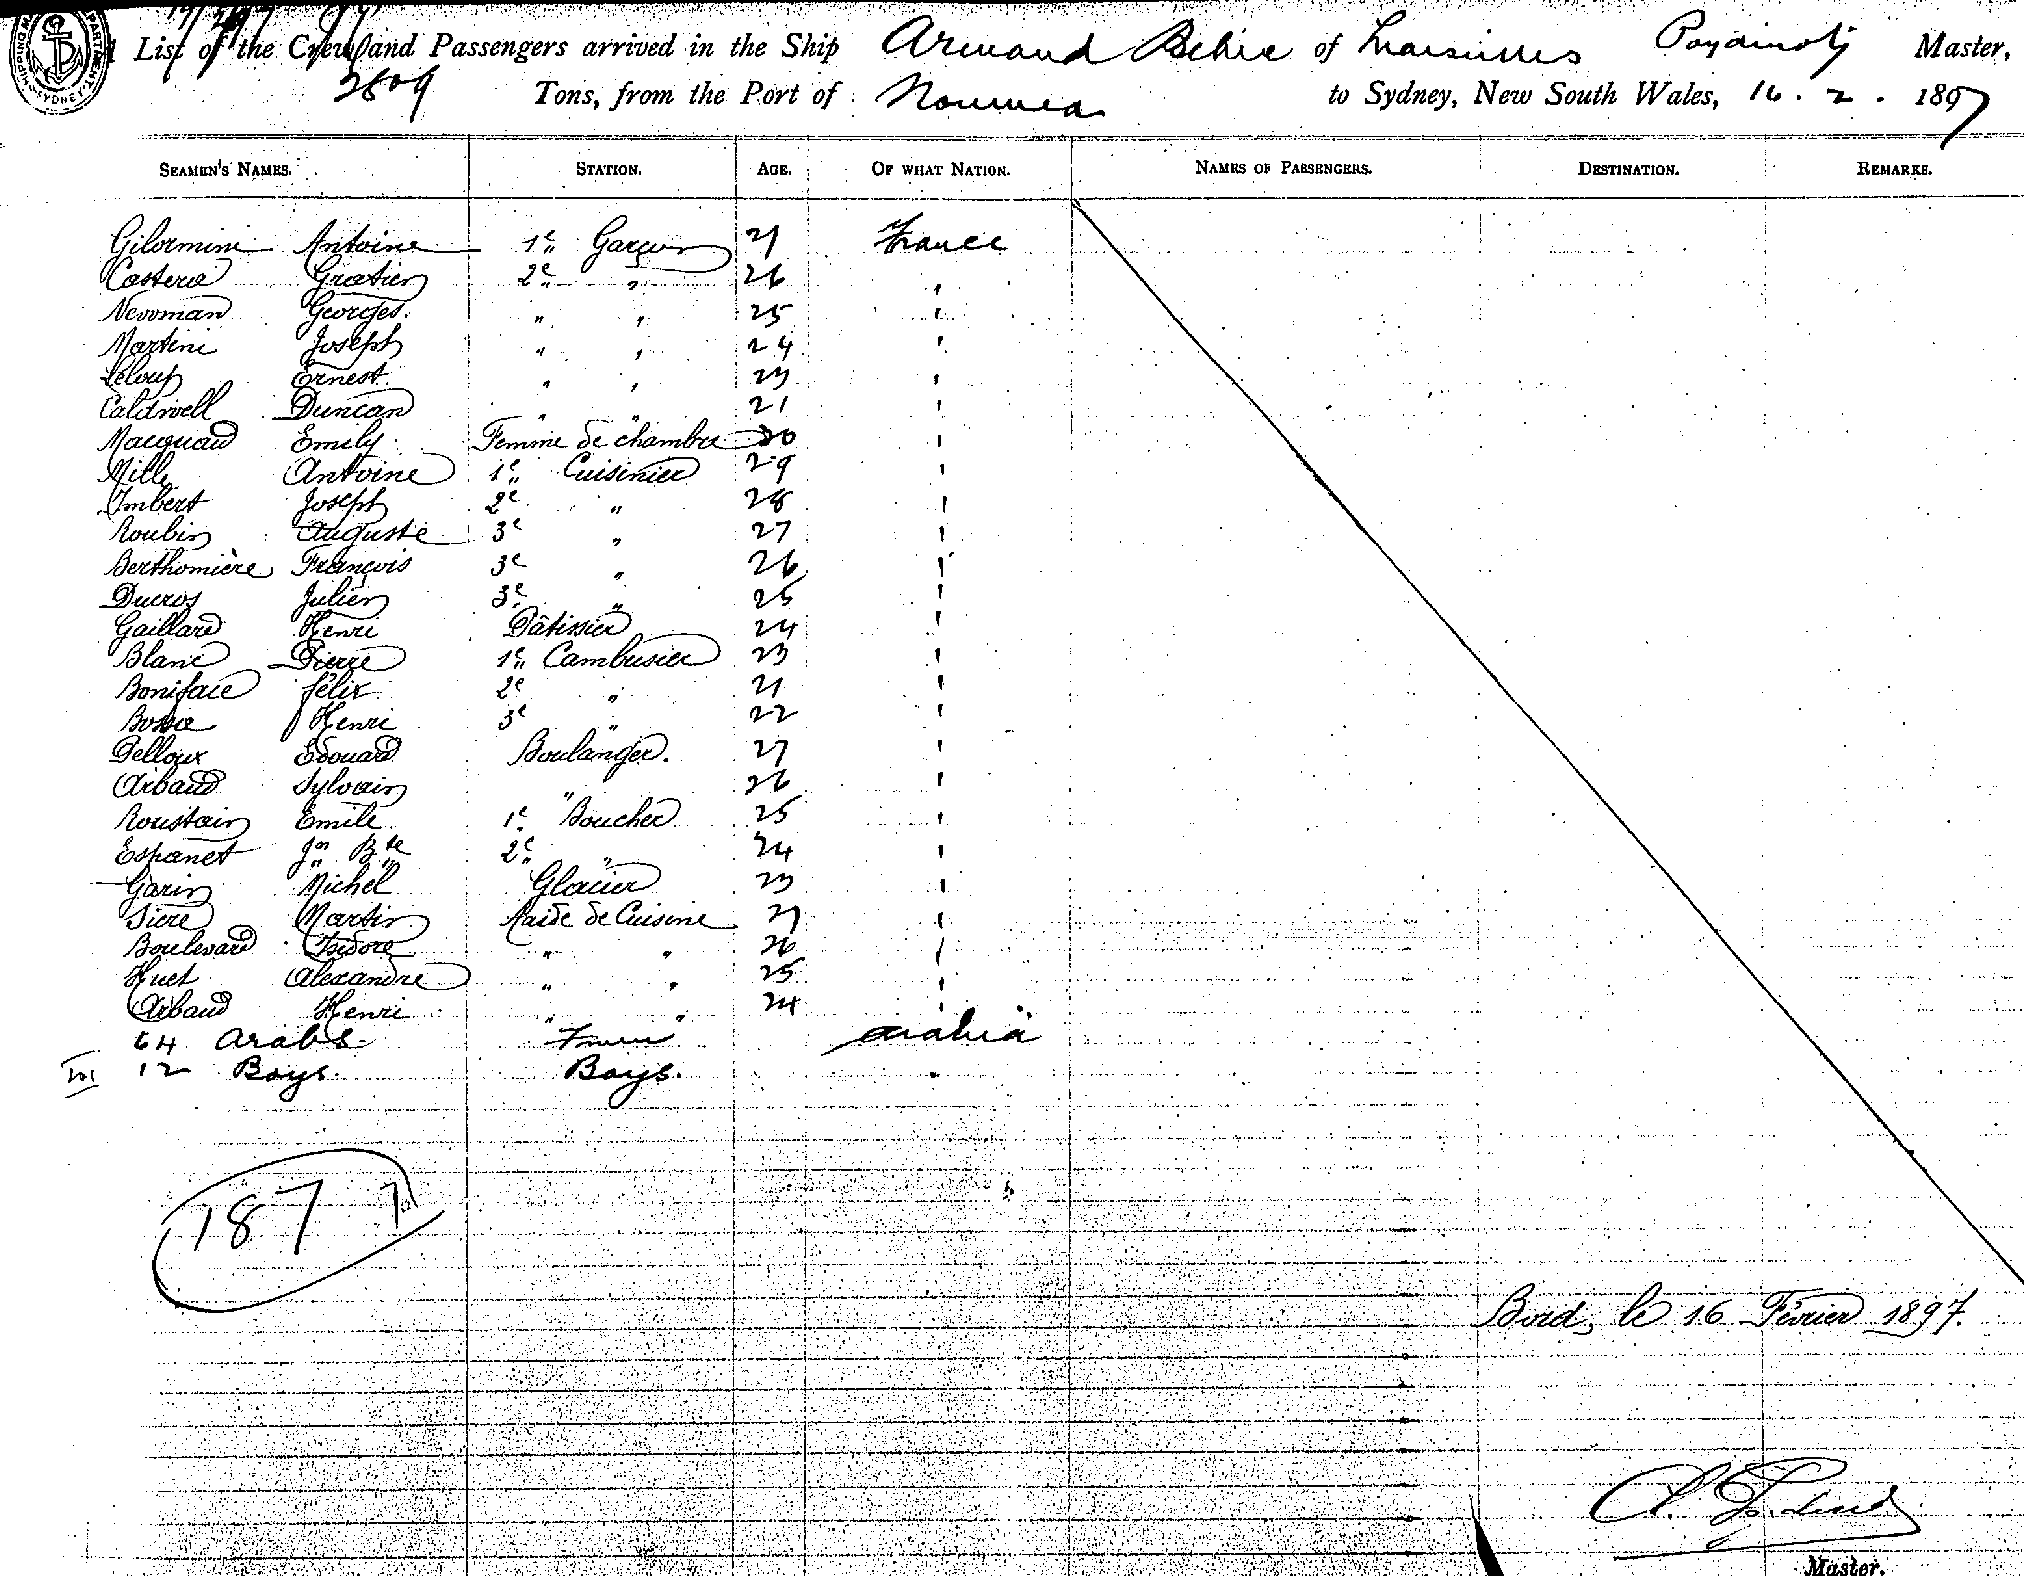 List of the Crew and Passengers arrived in the Ship Armand Behic of Marseilles Master,
2809 Tons, from the Port of Noumea to Sydney, New South Wales, 16. 2. 1897
SEAMEN'S NAMES. STATION. AGE. OF WHAT NATION. NAMES OF PASSENGERS. DESTINATION. REMARKS.
Gilormini Antoine 1e Garçon 27 France
Castera Gratien 2e " 26 "
Newman Georges. " " 25 "
Martini Joseph " " 24 "
Leloup Ernest " " 23 "
Caldwell Duncan " " 21 "
Macquaid Emely Femme de chambre 30 "
Mille Antoine 1e Cuisinier 29 "
Imbert Joseph 2e " 28 "
Roubin Auguste 3e " 27 "
Berthomière François 3e " 26 "
Ducros Julien 3e " 25 "
Gaillard Henri Pâtissier 24 "
Blanc Pierre 1e Cambusier 23 "
Boniface félix 2e " 21 "
Henri 3e " 22 "
Delloux Edouard Boulanger. 27 "
Arbaud Sylvain " 26 "
Roustain Emile 1e Boucher 25 "
Espanet Jn Bte 2e " 24 "
Garin Michel Glacier 23 "
Siere Martin Aaide de Cuisine 27 "
Boulevard Isidore " " 26 "
Huet Alexandre " " 25 "
Arbaud Henri " " 24 "
64 Arabs. Arabia
12 Boys. Boys. "
187
Bord, le 16 Février 1897.
Master.